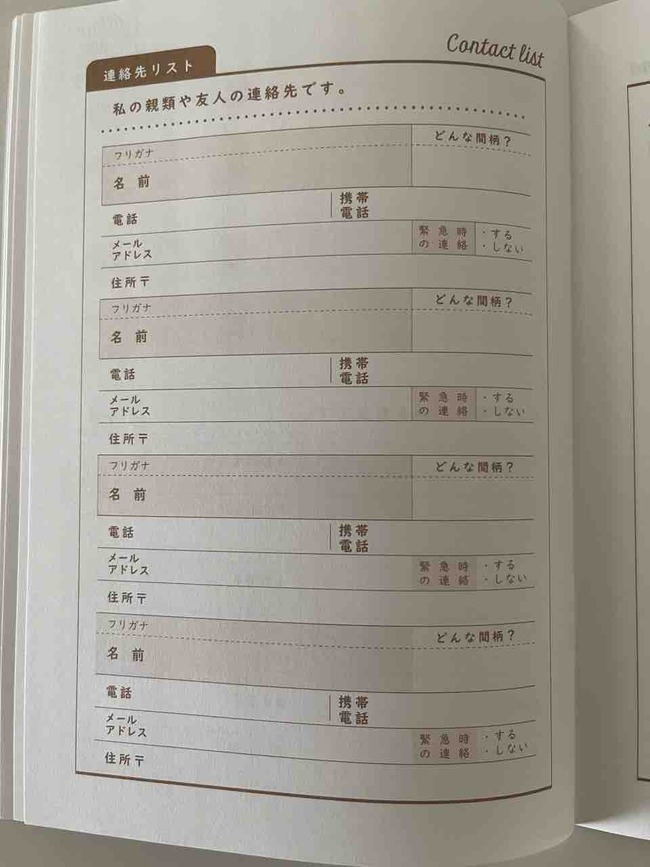 Contact list
連絡先リスト
私の親類や友人の連絡先です。
フリガナ
どんな間柄?
名前
電話
携帯
電話
メール
アドレス
緊急時
の連絡
・する
・しない
住所〒
フリガナ
どんな間柄?
名前
電話
携帯
電話
メール
アドレス
緊急時
の連絡
・する
・しない
住所〒
フリガナ
どんな間柄?
名前
電話
携帯
電話
メール
アドレス
緊急時
の連絡
・する
・しない
住所〒
フリガナ
どんな間柄?
名前
電話
携帯
電話
メール
アドレス
緊急時
の連絡
・する
・しない
住所〒